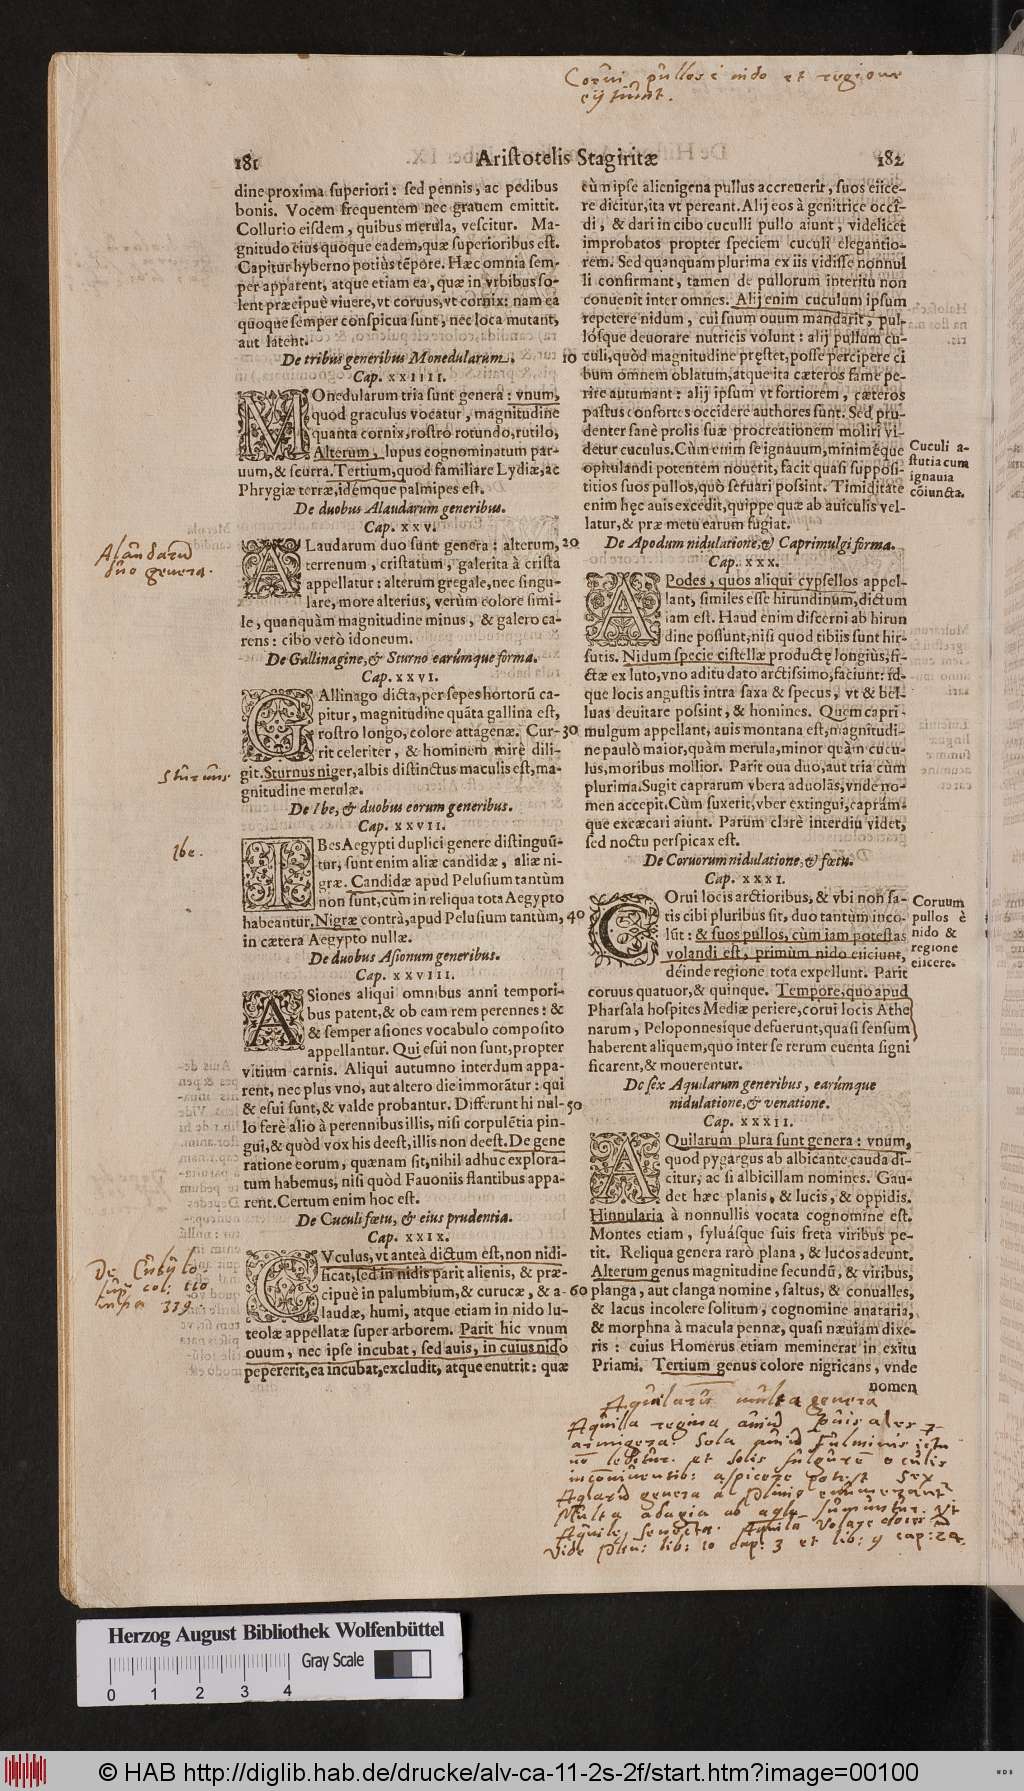 Corui pullos è nido et regione
eijtiunt.
181
Aristotelis Stagiritæ
182
dine proxima superiori: sed pennis, ac pedibus
bonis. Vocem frequentem nec grauem emittit.
Collurio eisdem, quibus merula, vescitur. Ma-
gnitudo eius quoque eadem, quæ superioribus est.
Capitur hyberno potiùs tẽpore. Hæc omnia sem-
per apparent, atque etiam ea, quæ in vrbibus so-
lent præcipuè viuere, vt coruus, vt cornix: nam ea
quoque semper conspicua sunt, nec loca mutant,
aut latent.
De tribus generibus Monedularum.
Cap. XXIIII.
MOnedularum tria sunt genera: vnum,
quod graculus vocatur, magnitudine
quanta cornix, rostro rotundo, rutilo,
Alterum, lupus cognominatum par-
uum, & scurra. Tertium, quod familiare Lydiæ, ac
Phrygiæ terræ, idémque palmipes est.
De duobus Alaudarum generibus.
Cap. XXV.
Alaudarũ
duo genera.
ALaudarum duo sunt genera: alterum,
terrenum, cristatum, galerita à crista
appellatur: alterum gregale, nec singu-
lare, more alterius, verùm colore simi-
le, quanquàm magnitudine minus, & galero ca-
rens: cibo verò idoneum.
De Gallinagine, & Sturno earúmque forma.
Cap. XXVI.
GAllinago dicta, per sepes hortorũ ca-
pitur, magnitudine quãta gallina est,
rostro longo, colore attagenæ. Cur-
rit celeriter, & hominem mirè dili-
git. Sturnus niger, albis distinctus maculis est, ma-
gnitudine merulæ.
Sturnus
De Ibe, & duobus eorum generibus.
Cap. XXVII.
Ibe.
IBes Aegypti duplici genere distinguũ-
tur, sunt enim aliæ candidæ, aliæ ni-
græ. Candidæ apud Pelusium tantùm
non sunt, cùm in reliqua tota Aegypto
habeantur. Nigræ contrà, apud Pelusium tantùm,
in cætera Aegypto nullæ.
De duobus Asionum generibus.
Cap. XXVIII.
ASiones aliqui omnibus anni tempori-
bus patent, & ob eam rem perennes: &
& semper asiones vocabulo composito
appellantur. Qui esui non sunt, propter
vitium carnis. Aliqui autumno interdum appa-
rent, nec plus vno, aut altero die immorãtur: qui
& esui sunt, & valde probantur. Differunt hi nul-
lo ferè alio à perennibus illis, nisi corpulẽtia pin-
gui, & quòd vox his deest, illis non deest. De gene
ratione eorum, quænam sit, nihil adhuc explora-
tum habemus, nisi quòd Fauoniis flantibus appa-
rent. Certum enim hoc est.
De Cuculi fœtu, & eius prudentia.
Cap. XXIX.
CVculus, vt anteà dictum est, non nidi-
ficat, sed in nidis parit alienis, & præ-
cipuè in palumbium, & curucæ, & a-
laudæ, humi, atque etiam in nido lu-
teolæ appellatæ super arborem. Parit hic vnum
ouum, nec ipse incubat, sed auis, in cuius nido
pepererit, ea incubat, excludit, atque enutrit: quæ
10
20
30
40
50
60
cù n ipse alienigena pullus accreuerit, suos eiice-
re dicitur, ita vt pereant. Alij eos à genitrice occi-
di, & dari in cibo cuculli pullo aiunt, videlicet
improbatos propter speciem cuculi elegantio-
rem. Sed quanquam plurima ex iis vidisse nonnul
li confirmant, tamen de pullorum interitu non
conuenit inter omnes. Alij enim cuculum ipsum
repetere nidum, cui suum ouum mandarit, pul-
lósque deuorare nutricis volunt: alij pullum cu-
culi, quòd magnitudine pręstet, posse percipere ci
bum omnem oblatum, atque ita cæteros fame pe-
rire autumant: alij ipsum vt fortiorem, cæteros
pastus consortes occidere authores sunt. Sed pru-
denter sanè prolis suæ procreationem moliri vi-
detur cuculus. Cùm enim se ignauum, minimèque
opitulandi potentem nouerit, facit quasi supposi-
titios suos pullos, quò seruari possint. Timiditate
enim hęc auis excedit, quippe quæ ab auiculis vel-
latur, & præ metu earum fugiat.
Cuculi a-
stutia cum
ignauia
cõiuncta.
De Apodum nidulatione, & Caprimulgi forma.
Cap. XXX.
APodes, quos aliqui cypsellos appel-
lant, similes esse hirundinum, dictum
iam est. Haud enim discerni ab hirun
dine possunt, nisi quod tibiis sunt hir-
sutis. Nidum specie cistellæ productę longiùs, fi-
ctæ ex luto, vno aditu dato arctissimo, faciunt: id-
que locis angustis intra saxa & specus, vt & bel-
luas deuitare possint, & homines. Quem capri-
mulgum appellant, auis montana est, magnitudi-
ne paulò maior, quàm merula, minor quàm cucu-
lus, moribus mollior. Parit oua duo, aut tria cùm
plurima. Sugit caprarum vbera aduolãs, vnde no-
men accepit. Cùm suxerit, vber extingui, caprám-
que excæcari aiunt. Parum clarè interdiu videt,
sed noctu perspicax est.
De Coruorum nidulatione, & fœtu.
Cap. XXXI.
COrui locis arctioribus, & vbi non sa-
tis cibi pluribus sit, duo tantùm inco-
lũt: & suos pullos, cùm iam potestas
volandi est, primùm nido eiiciunt,
déinde regione tota expellunt. Parit
coruus quatuor, & quinque. Tempore, quo apud
Pharsala hospites Mediæ periere, corui locis Athe
narum, Peloponnesíque defuerunt, quasi sensum
haberent aliquem, quo inter se rerum euenta signi
ficarent, & mouerentur.
Coruum
pullos è
nido &
regione
eiicere.
De sex Aquilarum generibus, earúmque
nidulatione, & venatione.
Cap. XXXII.
AQuilarum plura sunt genera: vnum,
quod pygargus ab albicante cauda di-
citur, ac si albicillam nomines. Gau-
det hæc planis, & lucis, & oppidis.
Hinnularia à nonnullis vocata cognomine est.
Montes etiam, syluásque suis freta viribus pe-
tit. Reliqua genera rarò plana, & lucos adeunt.
Alterum genus magnitudine secundũ, & viribus,
planga, aut clanga nomine, saltus, & conualles,
& lacus incolere solitum, cognomine anataria,
& morphna à macula pennæ, quasi næuiam dixe-
ris: cuius Homerus etiam meminerat in exitu
Priami. Tertium genus colore nigricans, vnde
nomen
De
col:
339
Aquilarũ multa genera
Aquilla regina auiũ
armigera. Sola fulminis ictu
et solis fulgurẽ oculis
aspicere potest Sex
genera
Multa adagia ab sumuntur. Vt
Aquilę senecta. Aquila
Vide Plin: lib: 10 cap: 3 et lib: 9 cap: 29.
Herzog August Bibliothek Wolfenbüttel
Gray Scale
0 1 2 3 4
© HAB http://diglib.hab.de/drucke/alv-ca-11-2s-2f/start.htm?image=00100